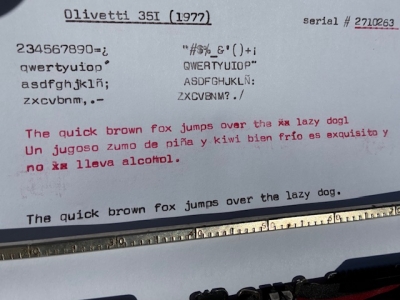 Olivetti 35I (1977)
serial # 2710263
234567890=¿
"#$%_&'()+¡
qwertyuiop´
QWERTYUIOP¨
asdfghjklñ;
ASDFGHJKLÑ:
zxcvbnm,.-
ZXCVBNM?./
The quick brown fox jumps over the lazy dogl
Un jugoso zumo de piña y kiwi bien frío es exquisito y
no lleva alcohol.
The quick brown fox jumps over the lazy dog.